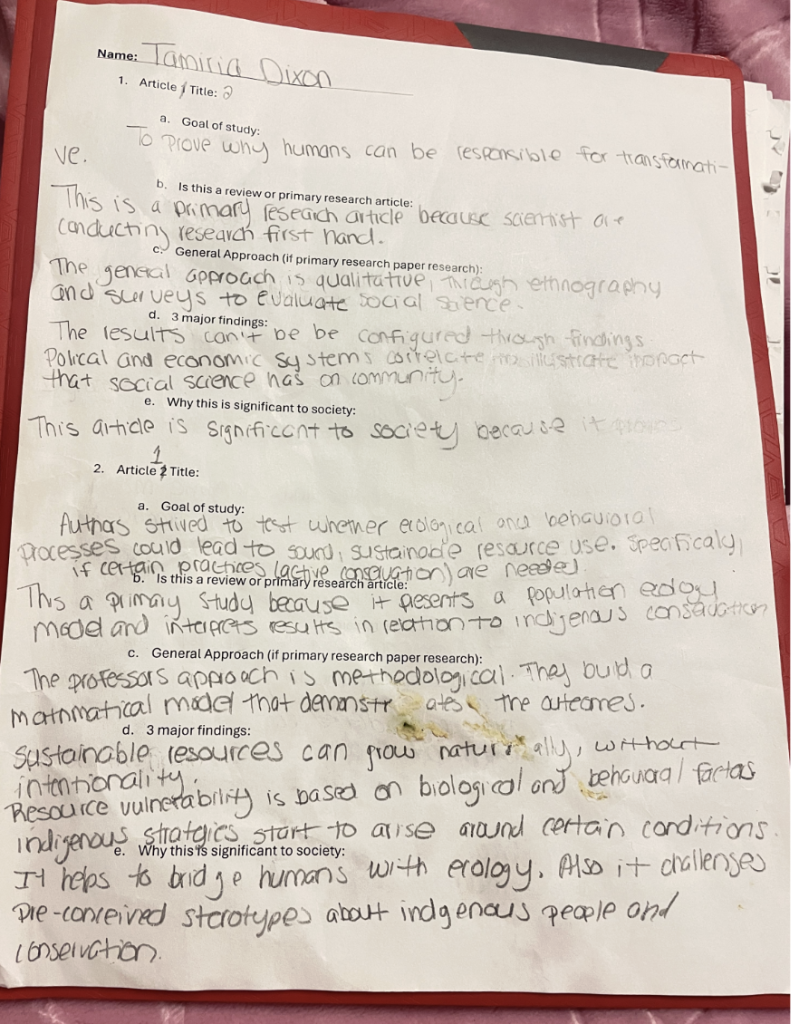 Name: Tamiria Dixon
1. Article 1 Title: 2
a. Goal of study:
To prove why humans can be responsible for transformati-
ve.
b. Is this a review or primary research article:
This is a primary research article because scientist are
conducting research first hand.
c. General Approach (if primary research paper research):
The general approach is qualitative, through ethnography
and surveys to evaluate social science.
d. 3 major findings:
The results can't be be configured through findings.
Polical and economic systems correlate illustrate impact
that social science has on community.
e. Why this is significant to society:
This article is significant to society because it
1
2. Article 2 Title:
a. Goal of study:
Authors strived to test whether ecological and behavioral
processes could lead to sound, sustainable resource use. Specificaly,
if certain practices (active conservation) are needed.
b. Is this a review or primary research article:
This a primary study because it presents a population ecology
model and interprets results in relation to indigenous conservation
c. General Approach (if primary research paper research):
The professors approach is methodological. They build a
mathmatical model that demonstrates the outcomes.
d. 3 major findings:
Sustainable resources can grow naturally, without
intentionality.
Resource vulnerability is based on biological and behavioral factors
indigenous stratgies start to arise around certain conditions.
e. Why this is significant to society:
It helps to bridge humans with ecology. Also it challenges
pre-conceived sterotypes about indgenous people and
conservation.